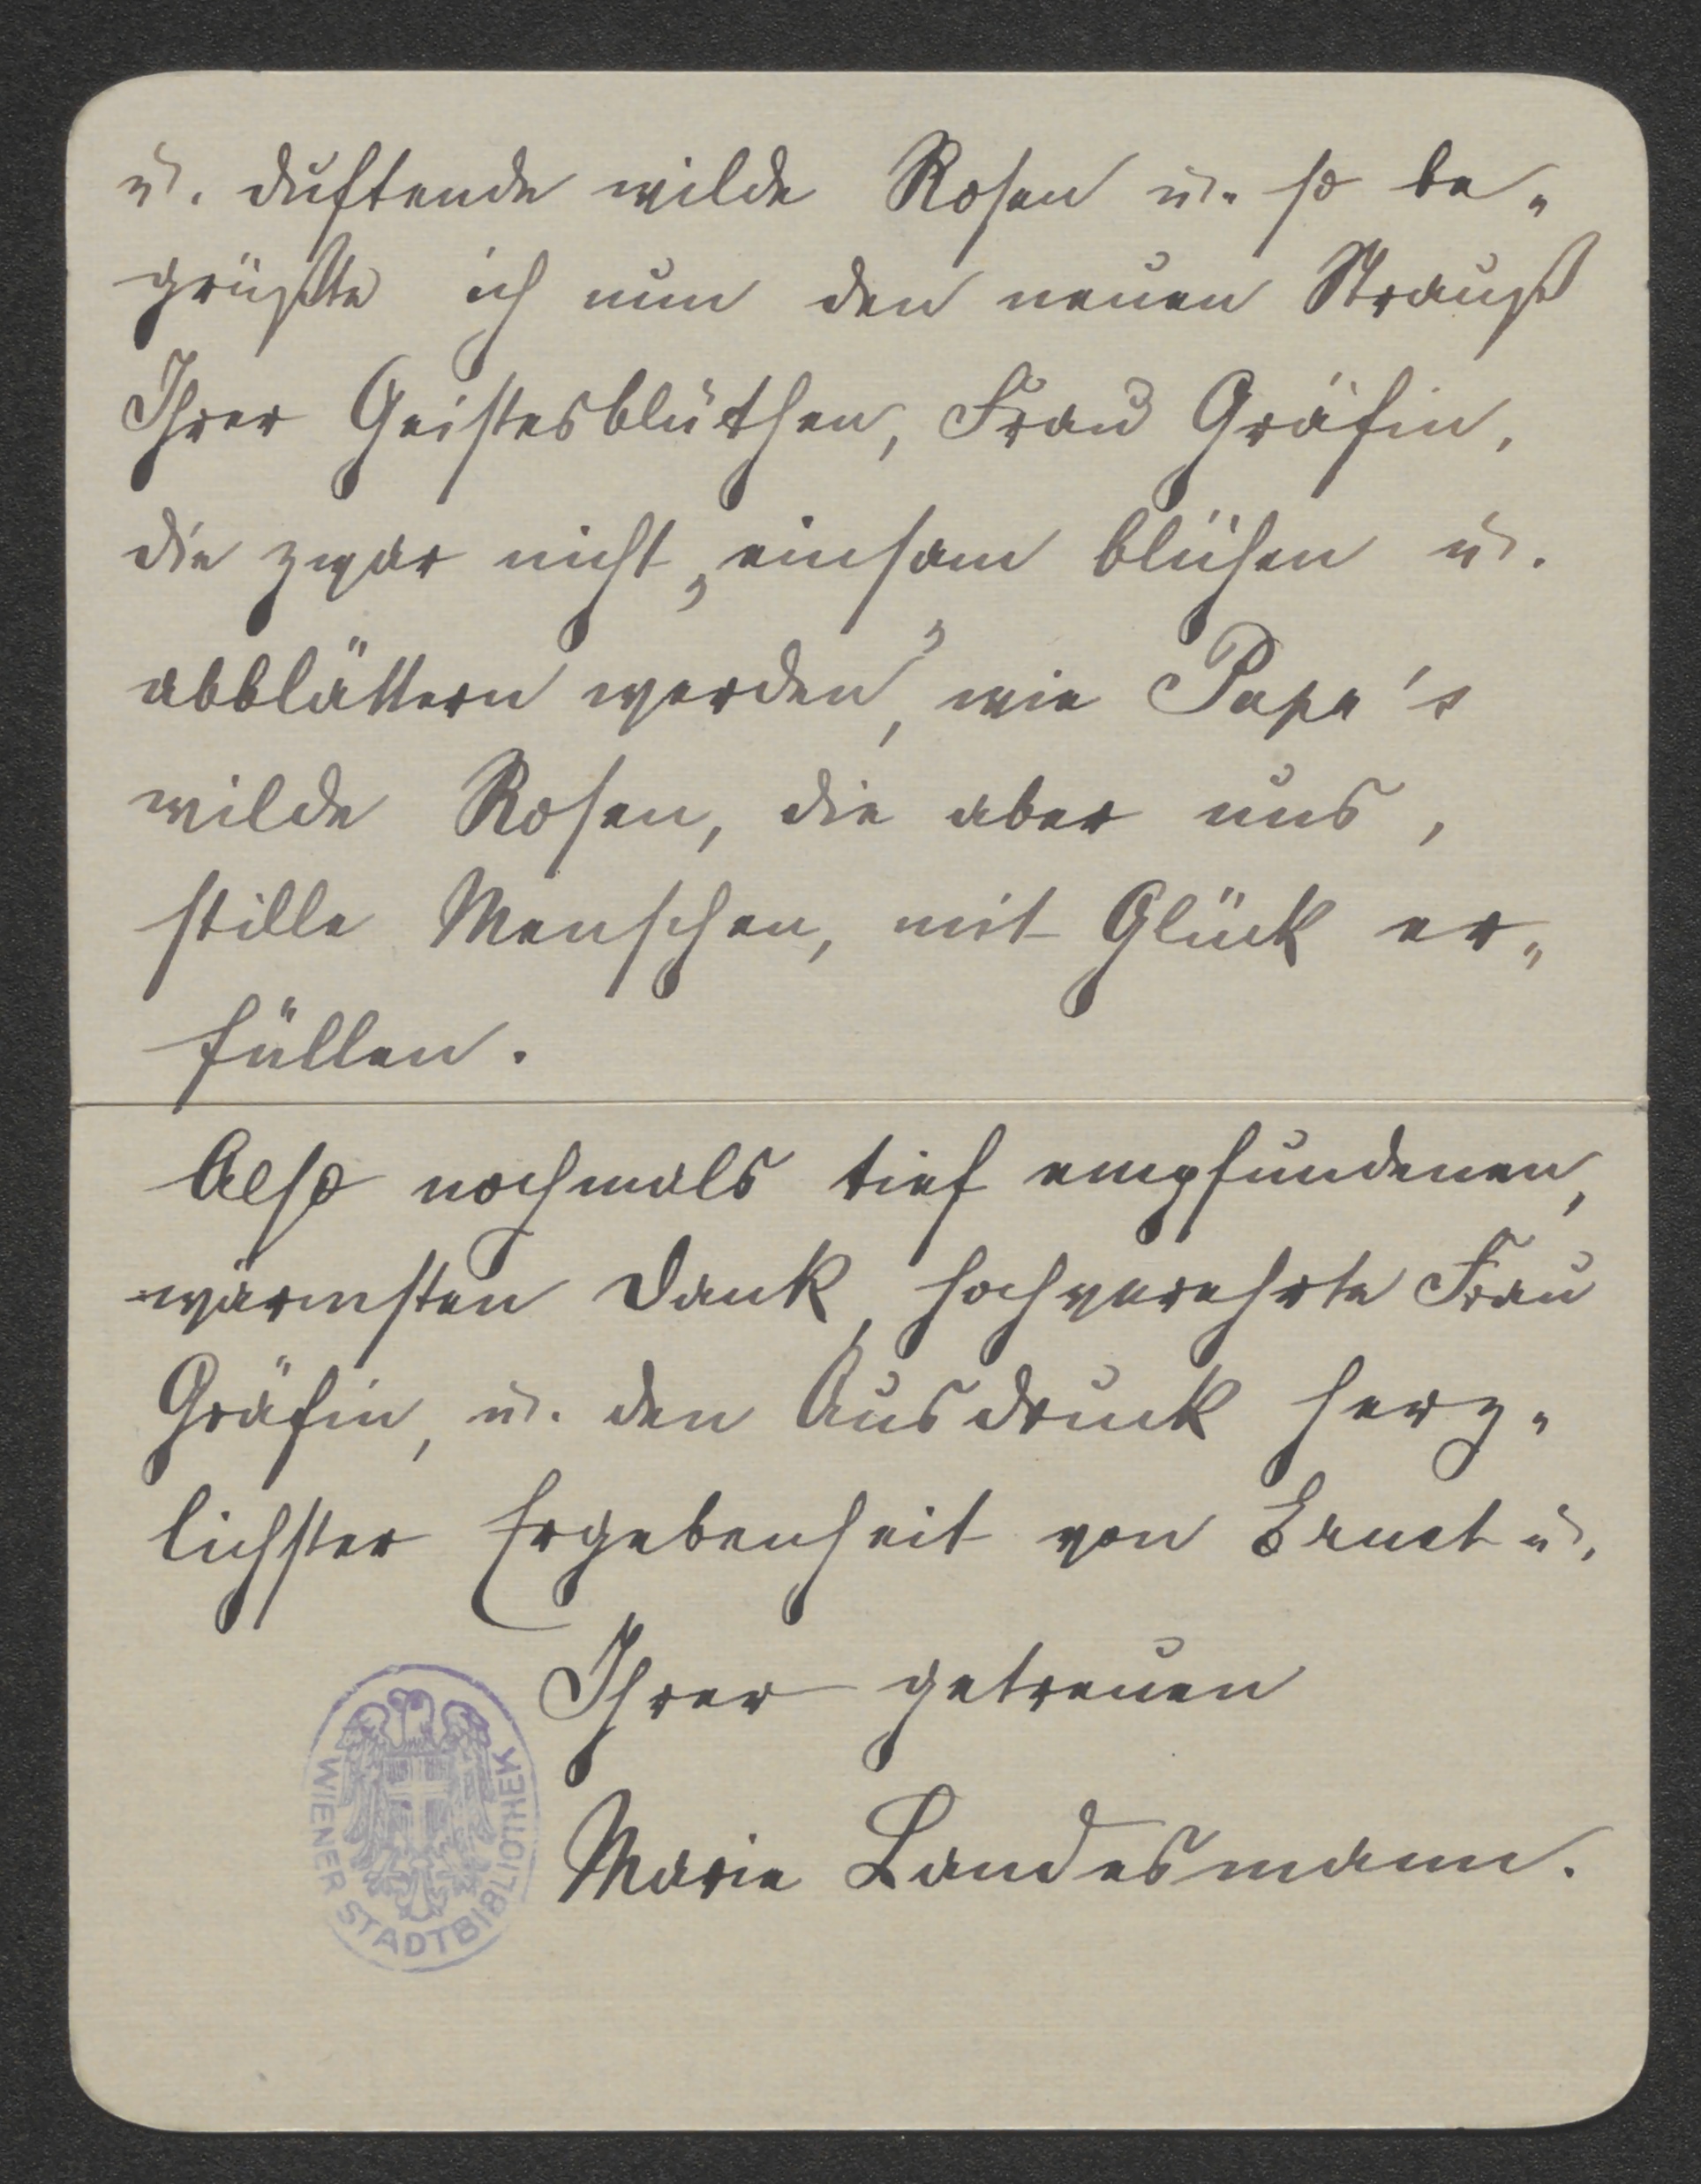 u. duftende wilde Rosen u. so be-
grüßte ich nun den neuen Strauß
Ihrer Geistesblüthen, Frau Gräfin,
die zwar nicht „einsam blühen u.
abblättern werden“, wie Papa's
wilde Rosen, die aber uns,
stille Menschen, mit Glück er-
füllen.
Also nochmals tief empfundenen,
wärmsten Dank, hochverehrte Frau
Gräfin, u. den Ausdruck herz-
lichster Ergebenheit von Ernst u.
Ihrer getreuen
Marie Landesmann.
WIENER STADTBIBLIOTHEK